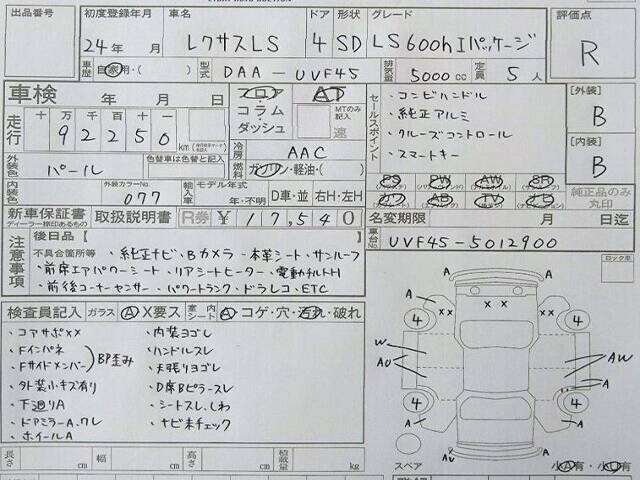 出品番号
初度登録年月 車名 ドア 形状 グレード 評価点
24年 月 レクサスLS 4 SD LS600hIパッケージ R
車歴 自家用・( ) 型式 DAA-UVF45 排気量 5000cc 定員 5人
車検 年 月 日 フロア AT
・コンビハンドル
[外装]
コラム MTのみ記入
・純正アルミ
B
走行 十万千百十
92250 km
ダッシュ 速
セールスポイント
・クルーズコントロール
[内装]
外装色 色替車は色替と記入
パール
冷房 AAC
・スマートキー
B
燃料 ガソリン・軽油・( )
PS PW AW SR
内装色 外装カラーNo. 077 輸入車 モデル年式 年・不明 D車・並 右H・左H
カワ AB TV ナビ 純正品のみ丸印
新車保証書 取扱説明書 R券 ¥17,540 名変期限 月 日迄
ディーラー捺印あるもの
車台No. UVF45-5012900
注意事項 後日品【 】
不具合箇所等 ・純正ナビ・Bカメラ・本革シート・サンルーフ
・前席エアパワーシート・リアシートヒーター・電動チルトH
・前後コーナーセンサー・パワートランク・ドラレコ・ETC
ロック車
検査員記入 ガラス A X要ス 室内シート A コゲ・穴・汚れ・破れ
・コアサポxx ・内装ヨゴレ
・Fインパネ ・ハンドルスレ
・Fサイドメンバー BP歪み ・天張りヨゴレ
・外装小キズ有り ・D席Bピラースレ
・下廻りA ・シートスレ、しわ
・ドアミラーA.ワレ ・ナビ未チェック
・ホイールA
A A
A xx x x xx A
4 4
W
AU AW
A
A 4 4 A
AU A
長さ cm 幅 cm 高さ cm 積載量 kg
スペア 小A有 小U有